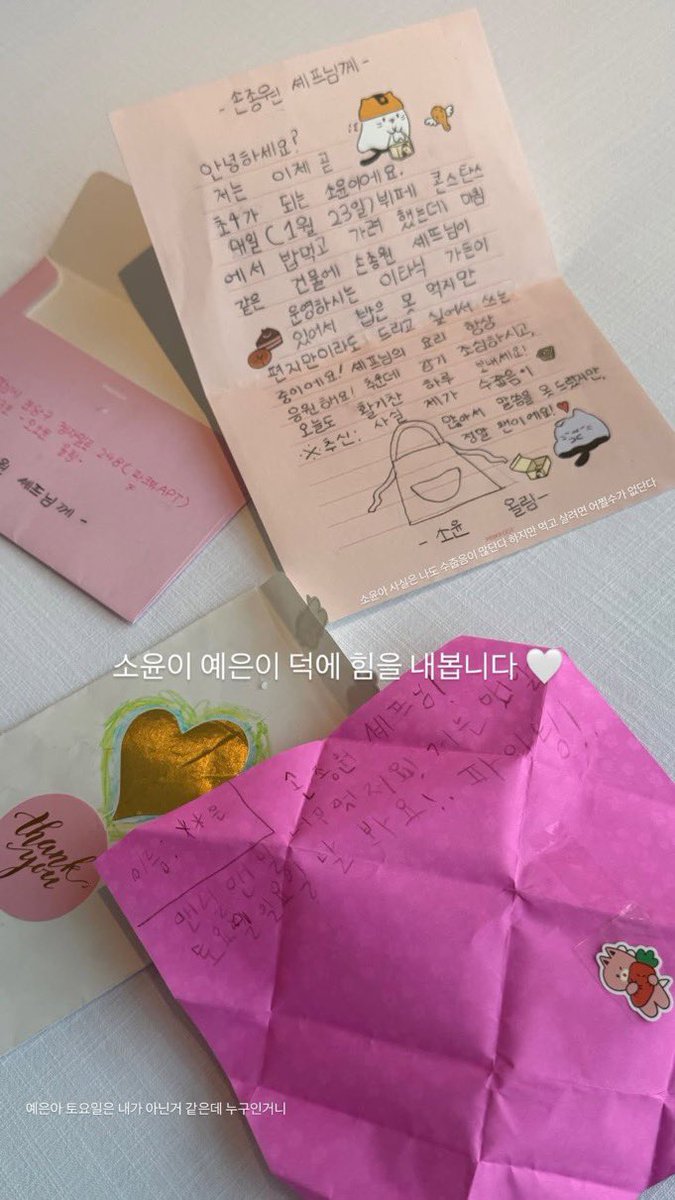 -손종원 셰프님께-
안녕하세요?
저는 이제 곧
초4가 되는 소윤이에요.
매일(1월 23일) 뷔페 콘스탄스
에서 밥먹고 가려 했는데 마침
같은 건물에 손종원 셰프님이
운영하시는 이타닉 가든이
있어서 밥은 못 먹지만
편지만이라도 드리고 싶어서 쓰는
중이에요! 셰프님의 요리 항상
응원해요! 추운데 감기 조심하시고,
오늘도 활기찬 하루 보내세요!
※추신: 사실 제가 수줍음이
많아서 말씀을 못 드렸지만,
정말 팬이에요!
-소윤 올림-
소윤아 사실은 나도 수줍음이 많단다 하지만 먹고 살려면 어쩔수가 없단다
셰프님께-
소윤이 예은이 덕에 힘을 내봅니다 🤍
thank
you
손종원 셰프님!
이름: **은
맨날 맨날
토요일
파이팅!..
예은아 토요일은 내가 아닌거 같은데 누구인거니